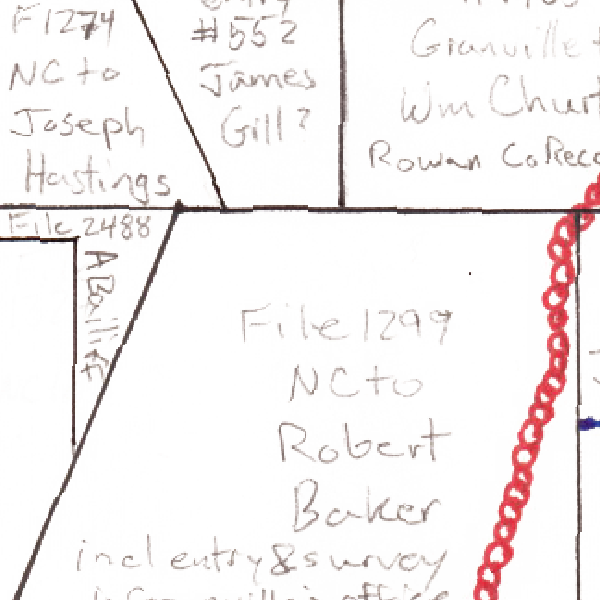 F1274
NC to
Joseph
Hastings
Entry
#552
James
Gill?
Granville
Wm Churt
Rowan Co Reco
File 2488
A Bailiff
File 1299
NC to
Robert
Baker
incl entry & survey
in Granville's office